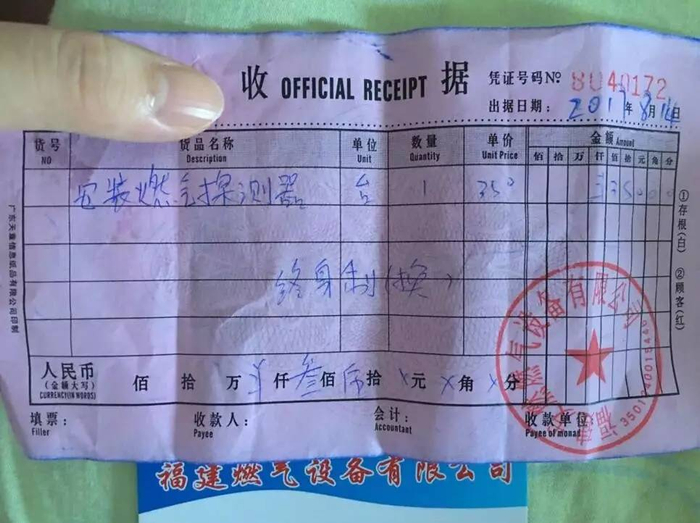 收 OFFICIAL RECEIPT 据
凭证号码No 8040172
出据日期: 2013年8月14日
货号 货品名称 单位 数量 单价 金额 Amount
NO Description Unit Quantity Unit Price 佰 拾 万 仟 佰 拾 元 角 分
安装燃气探测器 台 1 350 ¥35000
终身制(换)
人民币
(金额大写)
CURRENCY(IN WORDS)
佰 拾 万 ¥ 仟 叁 佰 伍 拾 元 角 分
填票: 收款人: 会计: 收款单位
Filler Payee Accountant Payee of monad
①存根(白) ②顾客(红)
广东天章信息纸品有限公司印制
气设备有限公司
福建燃气设备有限公司